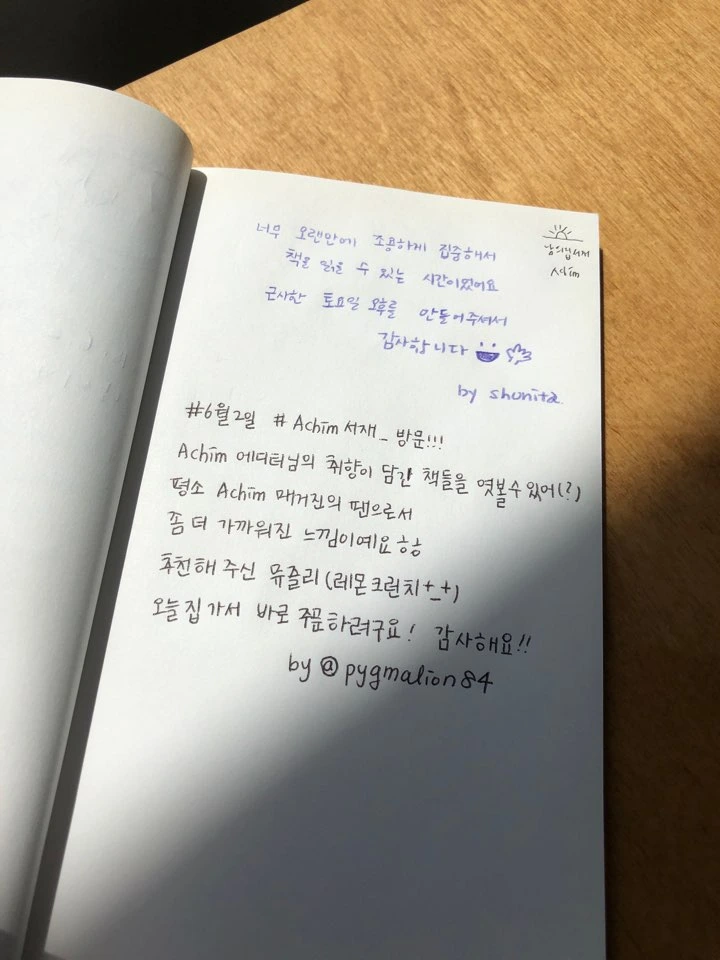 너무 오랜만에 조용하게 집중해서
책을 읽을 수 있는 시간이었어요
근사한 토요일 오후를 만들어주셔서
감사합니다
by shunita.
남의집서재
Achim
#6월2일 # Achim서재_ 방문!!!
Achim 에디터님의 취향이 담긴 책들을 엿볼수있어(?)
평소 Achim 매거진의 팬으로서
좀 더 가까워진 느낌이예요 ㅎㅎ
추천해 주신 뮤즐리 (레몬크런치+_+)
오늘 집 가서 바로 주문하려구요! 감사해요!!
by @pygmalion84